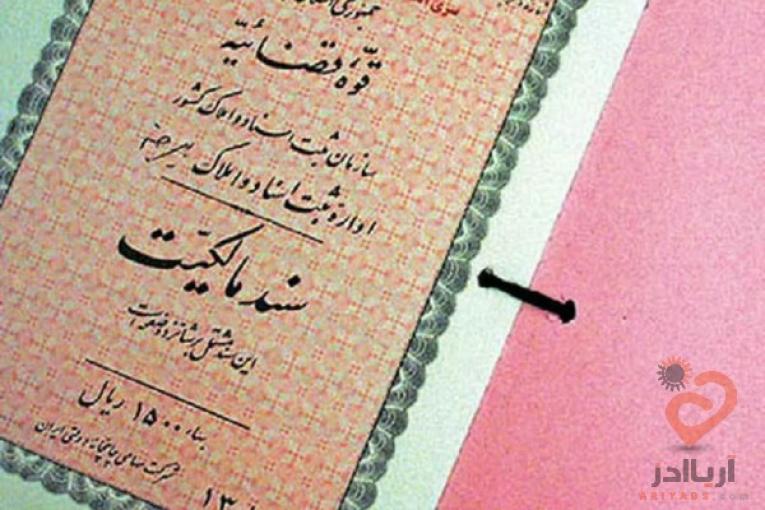 جمهوری اسلامی
قوهٔ قضائیّه
سازمان ثبت اسناد و املاک کشور
اداره ثبت اسناد و املاک بیرجند
سند مالکیّت
این سند مشتمل بر شانزده صفحه است
بهاء ۱۵۰۰ ریال
شرکت سهامی چاپخانه دولتی ایران
۱۳
آریاادز
ARIYADS.COM